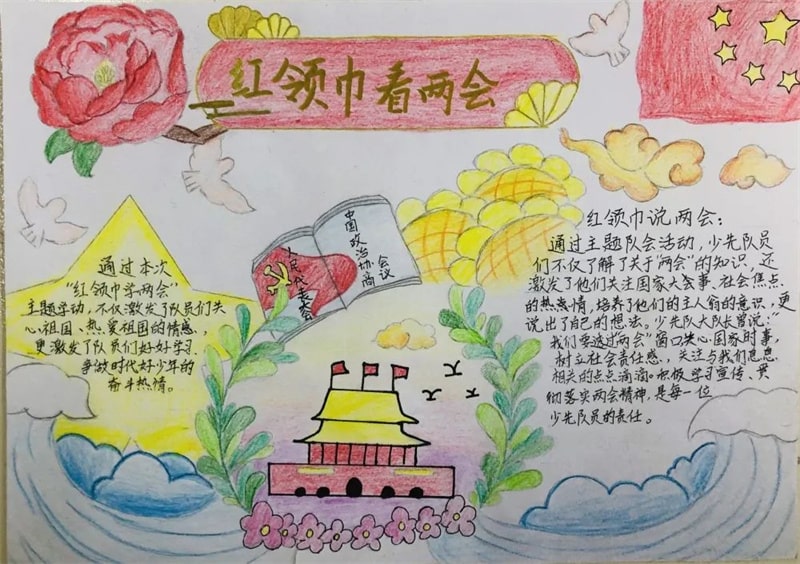 红领巾看两会
通过本次
“红领巾学两会”
主题学动,不仅激发了队员们关
心祖国、热爱祖国的情感,
更激发了队员们好好学习
争做时代好少年的
奋斗热情。
人民代表大会
中国政治协商
会议
红领巾说两会:
通过主题队会活动,少先队员
们不仅了解了关于“两会”的知识,还
激发了他们关注国家大会事、社会焦点
的热情,培养了他们的主人翁的意识,更
说出了自己的想法。少先队大队长曾说:“
我们要透过“两会”窗口关心国家时事,
树立社会责任感,关注与我们息息
相关的点点滴滴。积极学习宣传、贯
彻落实两会精神,是每一位
少先队员的责任。